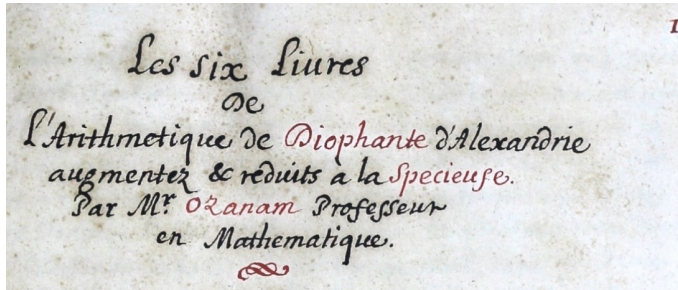 1
Les six Liures
De
L'Arithmetique de Diophante d'Alexandrie
augmentez & reduits a la Specieuse.
Par Mr. Ozanam Professeur
en Mathematique.